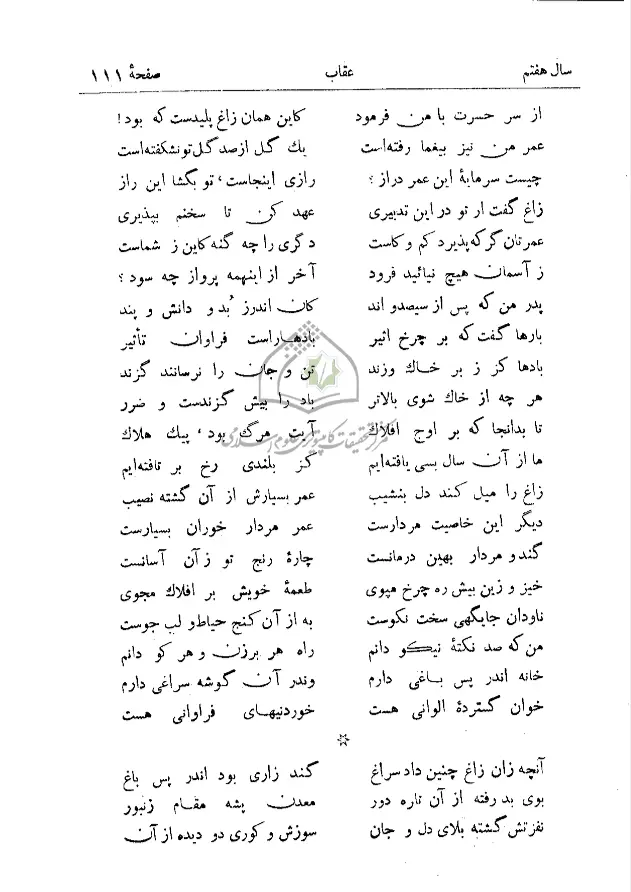 سال هفتم عقاب صفحهٔ ۱۱۱
از سر حسرت با من فرمود کاین همان زاغ پلیدست که بود!
عمر من نیز بیغما رفته‌است یك گل ازصد گل تو نشکفته‌است
چیست سرمایهٔ این عمر دراز؟ رازی اینجاست، تو بگشا این راز
زاغ گفت ار تو در این تدبیری عهد کن تا سخنم بپذیری
عمرتان گر که پذیرد کم و کاست دگری را چه گنه کاین ز شماست
ز آسمان هیچ نیائید فرود آخر از اینهمه پرواز چه سود؟
پدر من که پس از سیصد و اند کان اندرز بُد و دانش و پند
بارها گفت که بر چرخ اثیر بادهاراست فراوان تأثیر
بادها کز ز بر خاك وزند تن و جان را نرسانند گزند
هر چه از خاك شوی بالاتر باد را بیش گزندست و ضرر
تا بدانجا که بر اوج افلاك آیت مرگ بود، پیك هلاك
ما از آن سال بسی یافته‌ایم کز بلندی رخ بر تافته‌ایم
زاغ را میل کند دل بنشیب عمر بسیارش از آن گشته نصیب
دیگر این خاصیت مردارست عمر مردار خوران بسیارست
گند و مردار بهین درمانست چارهٔ رنج تو زآن آسانست
خیز و زین بیش ره چرخ مپوی طعمهٔ خویش بر افلاك مجوی
ناودان جایگهی سخت نکوست به از آن کنج حیاط و لب جوست
من که صد نکتهٔ نیکو دانم راه هر برزن و هر کو دانم
خانه اندر پس باغی دارم وندر آن گوشه سراغی دارم
خوان گستردهٔ الوانی هست خوردنیهای فراوانی هست
☆
آنچه زان زاغ چنین داد سراغ گند زاری بود اندر پس باغ
بوی بد رفته از آن تاره دور معدن پشه مقام زنبور
نفرتش گشته بلای دل و جان سوزش و کوری دو دیده از آن
مرکز تحقیقات کامپیوتری علوم اسلامی